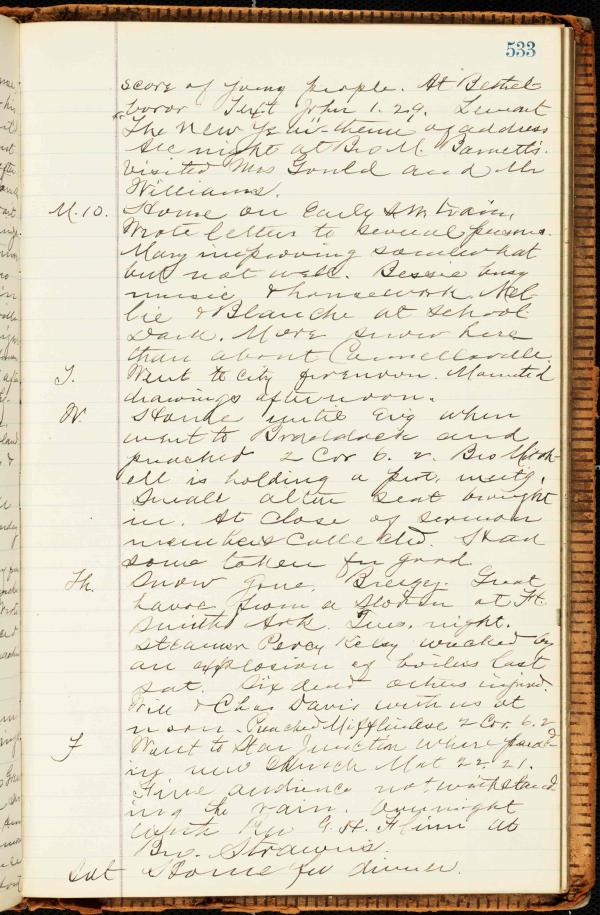 533
score of young people. At Bethel-
boror Text John 1.29. Lemont
The New Year-theme of address
All night at Bro M. Barnett's.
Visited Mrs Gould and Mr
Williams.
M. 10. Home on early S.W. train.
Wrote letters to several persons.
Mary improving somewhat
but not well. Bessie busy
music & housework. Nel-
lie & Blanche at School.
Dark. More snow here
than about Connellsville.
T. Went to city forenoon. Mounted
drawings afternoon.
W. Home until Ev'g when
went to Braddock and
preached 2 Cor 6. 2. Bro
ell is holding a prot. meet'g.
Small altar seat brought
in. At close of sermon
members collected. Had
some token for good
Th. Snow gone. Breezy. Great
havoc from a storm at Ft.
Smith Ark. Tues. night.
Steamer Percy Kelsey wrecked by
an explosion of boilers last
Sat. Six dead others injured.
Will & Chas Davis with us at
noon. Preached Mifflin Ave 2 Cor. 6. 2
F Went to Star Junction where preach'd
in new Church Mat 22. 21.
Fine audience notwithstand
ing the rain. Overnight
with Rev G. H. Flinn at
Bro. Strawns.
Sat Home for dinner.